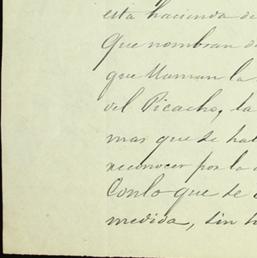 esta hacienda de
que nombran de
que llaman la
del Picacho, la
mas que se ha
reconocer por la
Con lo que se
medida, sin